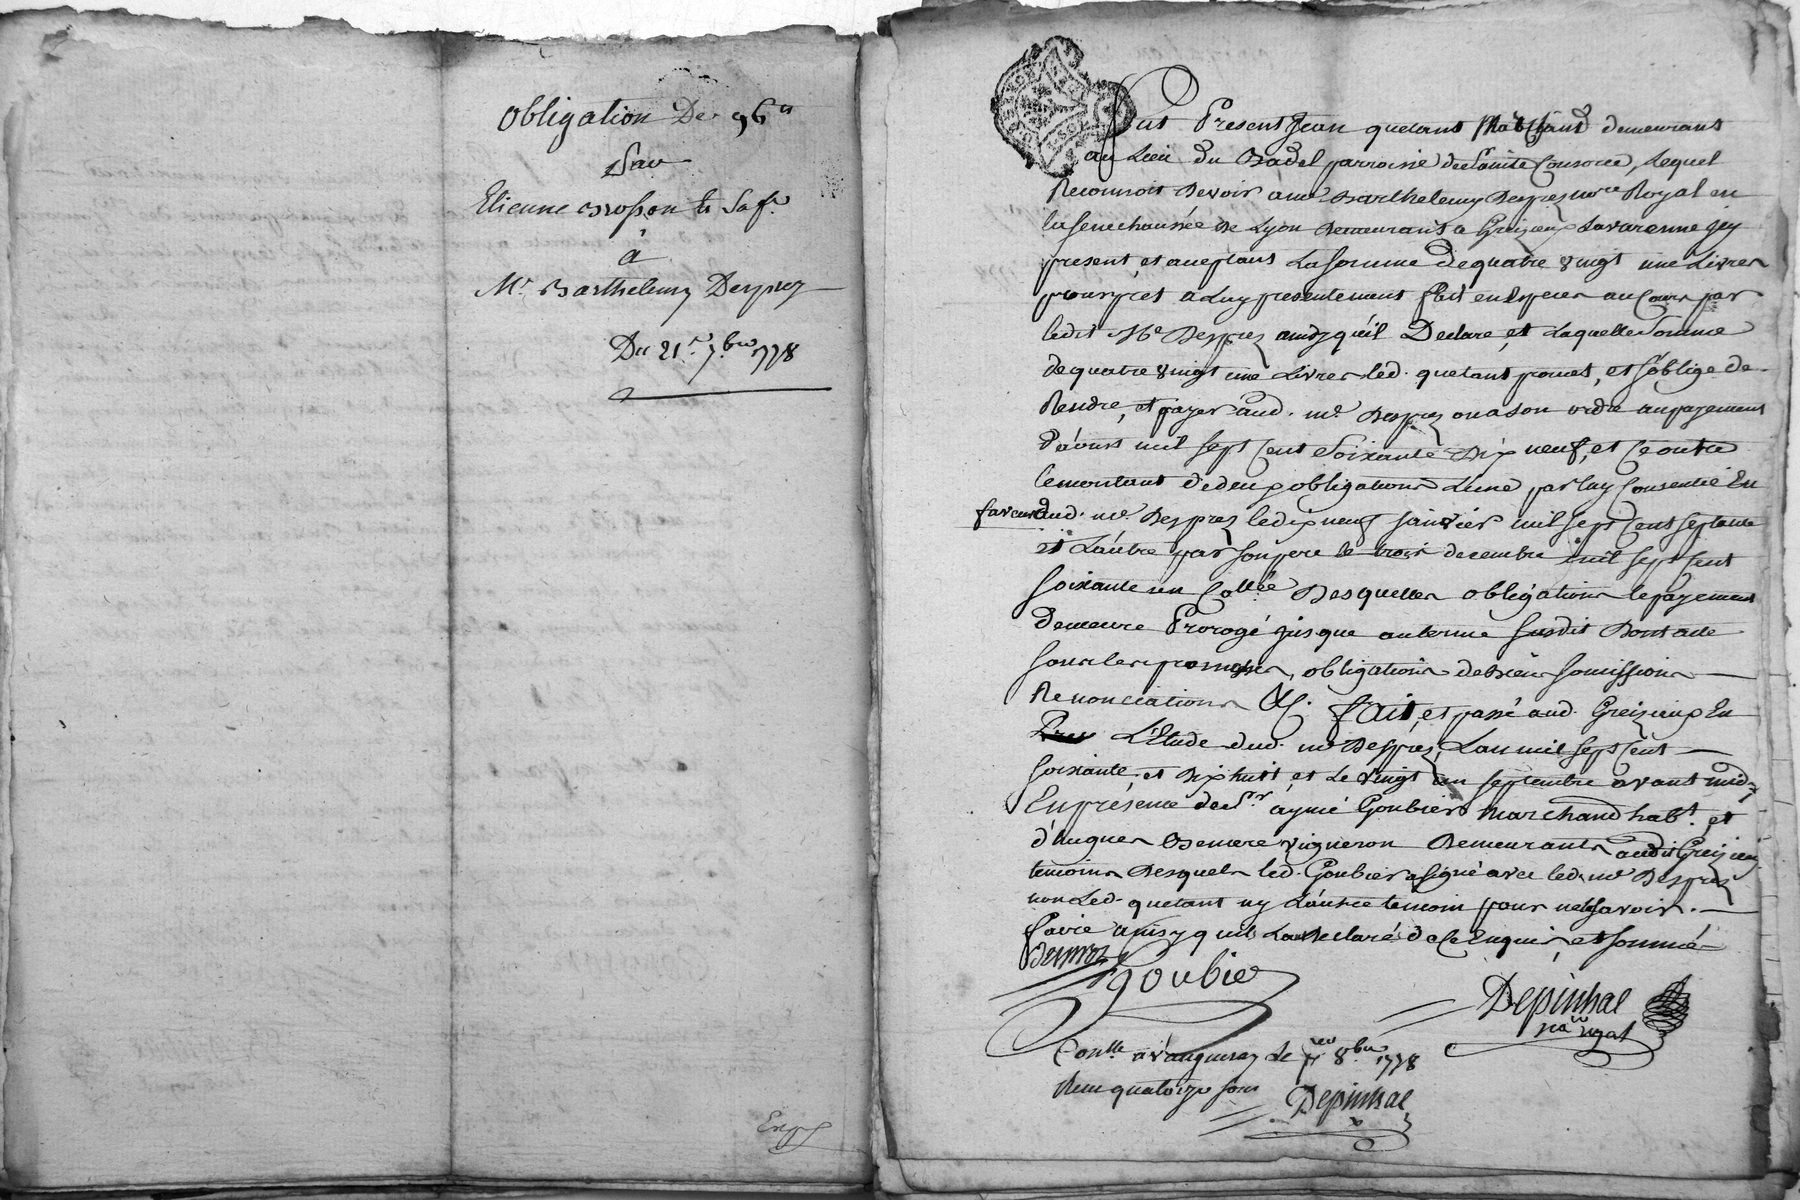 Obligation De 96ᵗᵗ
Par
Etienne Brosson
à
Mr Barthelemy Desprez
Du 21e 7bre 1778
Fut Present Jean quetant Marchand demeurant
au Lieu Du Badel parroisse de Sainte Consorce, Lequel
Reconnoit Devoir a me Barthelemy Desprez nore Royal en
la senechaussée De Lyon Demeurant a Greizieux Lavarenne icy
present, et aceptant La somme de quatre vingt une Livres
pour pret a Luy presentement fait en Especes au Cours par
ledit Me Desprez ainsy qu'il Declare, et Laquelle somme
de quatre vingt une Livres led. quetant promet, et s'oblige de
Rendre, et payer aud. me Desprez ou a son ordre au payement
D'aoust mil sept Cent soixante Dix neuf, et Ce outre
le montant de deux obligations L'une par luy Consentie En
faveur dud. me Desprez le dix neuf janvier mil sept Cent septante
et L'autre par son pere le trois decembre mil sept Cent
soixante un Collée Desquelles obligations le payement
Demeure Prorogé jusque au terme susdit Dont acte
sous les promesses, obligations de biens somissions
Renonciations &c. fait, et passé aud. Greizieux En
L'Etude dud. me Desprez, L'an mil sept Cent
soixante et Dix huit, et Le vingt un septembre avant midy
En présence de Sr aymé Goubier Marchand habt. et
d'hugues Benière vigneron Demeurants audit Greizieux
temoins Desquels led. Goubier a signé avec led. me Desprez
non Led. quetant ny L'autre temoin pour ne le savoir
faire ainsy qu'ils L'ont Declaré de Ce Enquis, et sommé
Desprez
Goubier
Depinhac
nore royal
Conllé a vaugneray Le 1er 8bre 1778
Reçu quatorze sous
Depinhac